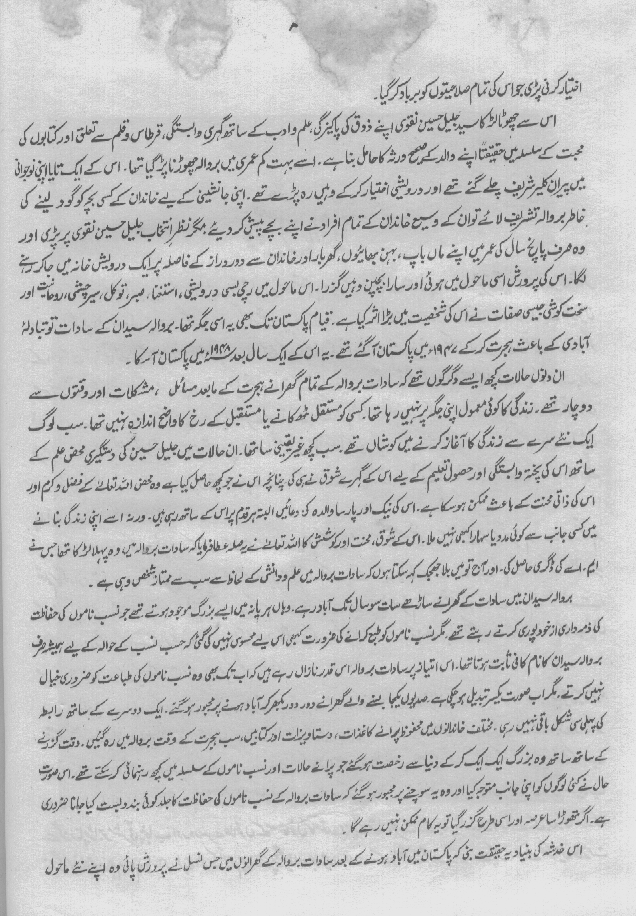 ۳
اختیار کرنی پڑی جو اس کی تمام صلاحیتوں کو برباد کر گیا۔
اس سے چھوٹا لڑکا سید جلیل حسین نقوی اپنے ذوق کی پاکیزگی، علم و ادب کے ساتھ گہری وابستگی، قرطاس و قلم سے تعلق اور کتابوں کی
محبت کے سلسلہ میں حقیقتاً اپنے والد کے صحیح ورثہ کا حامل بنا ہے۔ اسے بہت کم عمری میں بروالہ چھوڑنا پڑ گیا تھا۔ اس کے ایک تایا اپنی نوجوانی
میں پیران کلیر شریف چلے گئے تھے اور درویشی اختیار کر کے وہیں رہ پڑے تھے۔ اپنی جانشینی کے لیے خاندان کے کسی بچہ کو گود لینے کی
خاطر بروالہ تشریف لائے تو ان کے وسیع خاندان کے تمام افراد نے اپنے بچے پیش کر دیئے مگر نظرِ انتخاب جلیل حسین نقوی پر پڑی اور
وہ صرف پانچ سال کی عمر میں اپنے ماں باپ، بہن بھائیوں، گھر بار اور خاندان سے دور دراز کے فاصلہ پر ایک درویش خانہ میں جا کر رہنے
لگا۔ اس کی پرورش اسی ماحول میں ہوئی اور سارا بچپن وہیں گزرا۔ اس ماحول میں رچی بسی درویشی، استغنا، صبر، توکل، سیر چشمی، روحانیت اور
سخت کوشی جیسی صفات نے اس کی شخصیت میں بڑا اثر کیا ہے۔ قیام پاکستان تک بھی یہ اسی جگہ تھا۔ بروالہ سیدان کے سادات تو تبادلۂ
آبادی کے باعث ہجرت کر کے ۱۹۴۷ء میں پاکستان آ گئے تھے۔ یہ اس کے ایک سال بعد ۱۹۴۸ء میں پاکستان آ سکا۔
ان دنوں حالات کچھ ایسے دگرگوں تھے کہ سادات بروالہ کے تمام گھرانے ہجرت کے مابعد مسائل، مشکلات اور دقتوں سے
دوچار تھے۔ زندگی کا کوئی معمول اپنی جگہ پر نہیں رہا تھا۔ کسی کو مستقل ٹھوکانے یا مستقبل کے رخ کا واضح اندازہ نہیں تھا۔ سب لوگ
ایک نئے سرے سے زندگی کا آغاز کرنے میں کوشاں تھے۔ سب کچھ غیر یقینی سا تھا۔ ان حالات میں جلیل حسین کی دستگیری محض علم کے
ساتھ اس کی پختہ وابستگی اور حصول تعلیم کے لیے اس کے گہرے شوق نے ہی کی چنانچہ اس نے جو کچھ حاصل کیا ہے وہ محض اللہ تعالےٰ کے فضل و کرم اور
اس کی ذاتی محنت کے باعث ممکن ہو سکا ہے۔ اس کی نیک اور پارسا والدہ کی دعائیں البتہ ہر قدم پر اس کے ساتھ رہی ہیں۔ ورنہ اسے اپنی زندگی بنانے
میں کسی جانب سے کوئی مدد یا سہارا کبھی نہیں ملا۔ اس کے شوق، محنت اور کوشش کا اللہ تعالےٰ نے یہ صلہ عطا فرمایا کہ سادات بروالہ میں وہ پہلا لڑکا تھا جس نے
ایم۔ اے کی ڈگری حاصل کی۔ اور آج تو میں بلا جھجک کہہ سکتا ہوں کہ سادات بروالہ میں علم و دانش کے لحاظ سے سب سے ممتاز شخص وہی ہے۔
بروالہ سیدان میں سادات کے گھرانے ساڑھے سات سو سال تک آباد رہے۔ وہاں ہریانہ میں ایسے بزرگ موجود ہوتے تھے جو نسب ناموں کی حفاظت
کی ذمہ داری از خود پوری کرتے رہتے تھے۔ مگر نسب ناموں کو طبع کرانے کی ضرورت کبھی اس لیے محسوس نہیں کی گئی کہ حسب نسب کے حوالہ کے لیے ہمیشہ صرف
بروالہ سیدان کا نام کافی ثابت ہوتا تھا۔ اس امتیاز پر سادات بروالہ اس قدر نازاں رہے ہیں کہ اب تک بھی وہ نسب ناموں کی طباعت کو ضروری خیال
نہیں کرتے۔ مگر اب صورت یکسر تبدیل ہو چکی ہے۔ صدیوں یکجا بسنے والے گھرانے دور دور بکھر کر آباد ہونے پر مجبور ہو گئے۔ ایک دوسرے کے ساتھ رابطہ
کی پہلی سی شکل باقی نہیں رہی۔ مختلف خاندانوں میں محفوظ پرانے کاغذات، دستاویزات اور کتابیں، سب ہجرت کے وقت بروالہ میں رہ گئیں۔ وقت گزرنے
کے ساتھ ساتھ وہ بزرگ ایک ایک کر کے دنیا سے رخصت ہو گئے جو پرانے حالات اور نسب ناموں کے سلسلہ میں کچھ رہنمائی کر سکتے تھے۔ اس صورت
حال نے کئی لوگوں کو اپنی جانب متوجہ کیا اور وہ یہ سوچنے پر مجبور ہو گئے کہ سادات بروالہ کے نسب ناموں کی حفاظت کا جلد کوئی بندوبست کیا جانا ضروری
ہے۔ اگر تھوڑا سا عرصہ اور اسی طرح گزر گیا تو یہ کام ممکن نہیں رہے گا۔
اس خدشہ کی بنیاد یہ حقیقت بنی کہ پاکستان میں آباد ہونے کے بعد سادات بروالہ کے گھرانوں میں جس نسل نے پرورش پائی وہ اپنے نئے ماحول